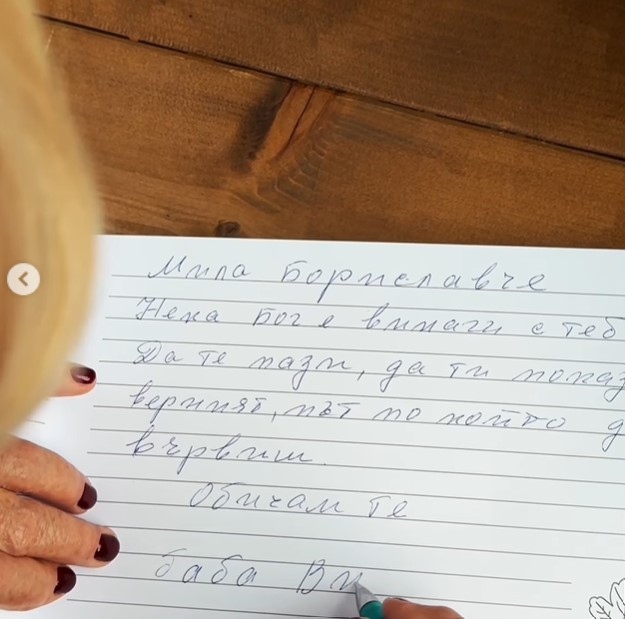 Мила Бориславче
Нека Бог е винаги с теб
Да те пази, да ти показ
верният, път по който д
вървиш.
Обичам те
баба Ви